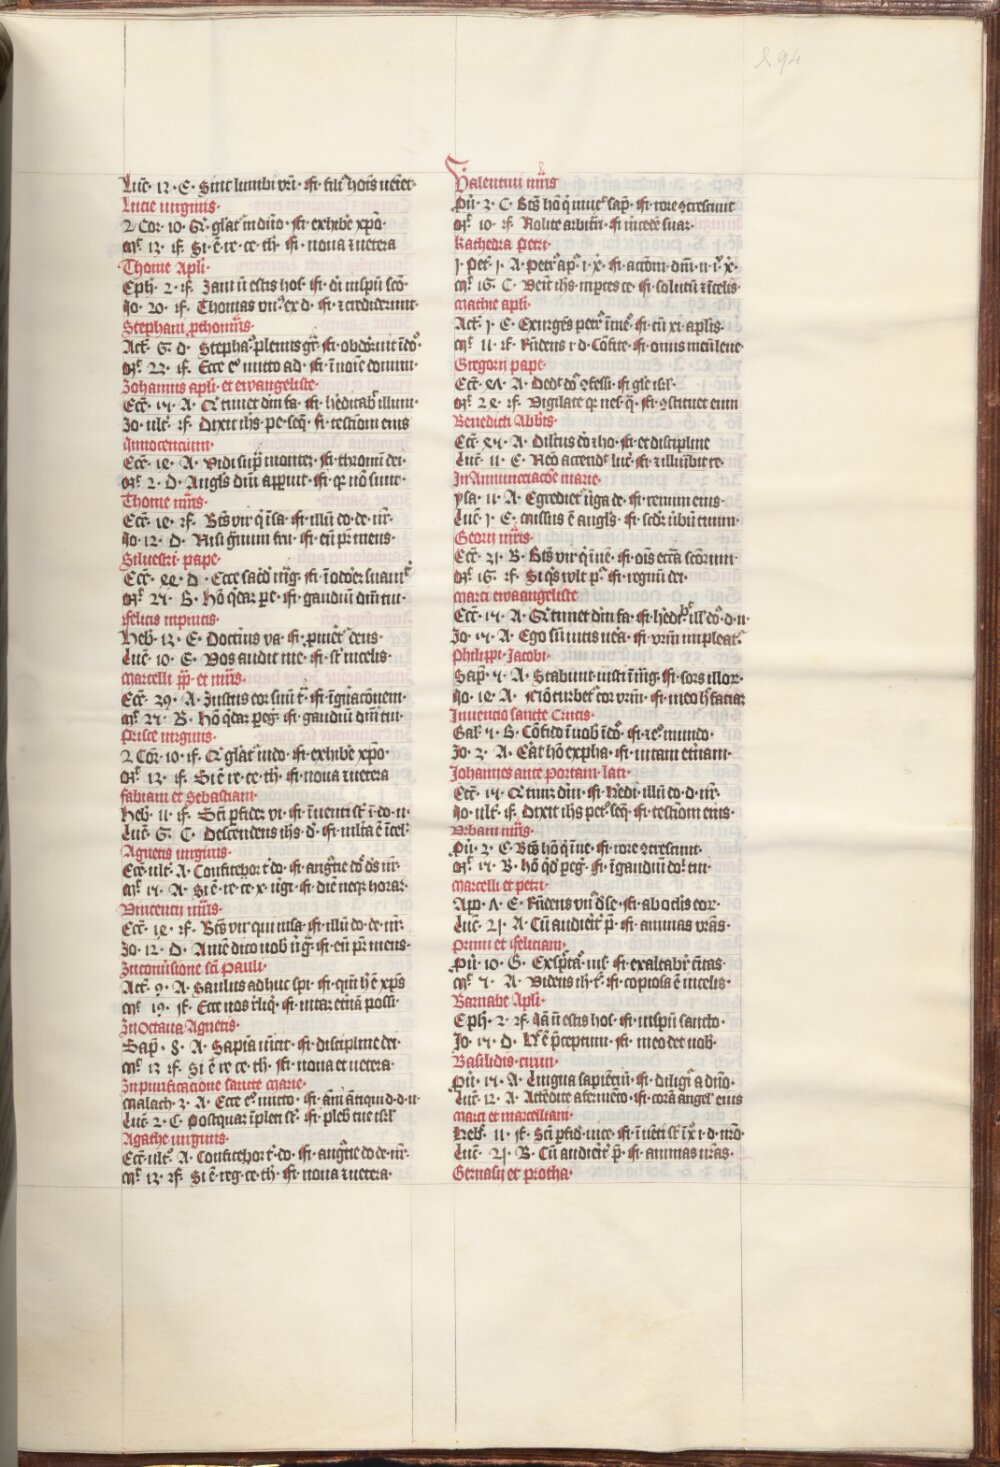 294
Luc̄· 12· E· Sint lumbi vr̄i· fi· fili⁹ hoīs veīet·
Lucie virginis·
2 Cor· 10· Gͥ· glāt̄ in dn̄o· fi· exhibē xp̄o·
Mͭ· 13· f· Si ē· re· ce· th̄· fi· noua ⁊ uetera
Thome Apl̄i·
Eph̄· 2· f· Iam n̄ estis hos̄· fi· dī in sp̄u scō·
Jo· 20· f· Thomas vn⁹ ex d· fi· ⁊ crediderunt·
Stephani ꝓthom̄ris·
Act̄· 6· d· Stepha⁹ plenus gr̄· fi· obdor̄uit ī dō·
Mͭ· 23· f· Ecce e⁹ mitto ad· fi· ī noīe domini·
Johannis apl̄i· et ewangeliste·
Ecc̄· 15· A· Qͥ timet dm̄ fa· fi· h̄editab̄ illum·
Jo· ult̄· f· Dixit ih̄s· pe· seq̄· fi· testīom eius
Innocentium·
Ecc̄· 14· A· Vidi sup̄ montē· fi· thronū dei·
Mͭ· 2· D· Angl̄s dn̄i apparuit· fi· qr nō sunt·
Thome m̄ris·
Ecc̄· 14· f· Bt̄s vir q̄ ī sa· fi· illū co· de· nr̄·
Jo· 12· D· Nisi ḡnum fru· fi· eū pr̄ meus·
Siluestri· pape·
Ecc̄· 44· D· Ecce sac̄dō mḡ· fi· ī odorē suauit̄·
Mͭ· 25· B· Hō q̄dar pe· fi· gaudiū dn̄i tui·
felicis in pincis·
Heb̄· 13· E· Doctrīis va· fi· ꝑmāet̄ ceus·
Luc̄· 10· E· Vos audit me· fi· st̄ in celis·
Marcelli pp̄· et m̄ris·
Ecc̄· 39· A· Iustus cor suū t̄· fi· ī gnacōnem·
Mͭ· 25· B· Hō q̄dar peḡ· fi· gaudiū dn̄i tui·
Prisce virginis·
2 Cor̄· 10· f· Qͥ glāt̄ in do· fi· exhibē xp̄o·
Mͭ· 13· f· Si ē re· ce· th̄· fi· noua ⁊ uetera
fabiani et Sebastiani·
Heb̄· 11· f· Scī ꝑ fidē vi· fi· ī uenti st̄· ī· co· n·
Luc̄· 6· C· Descendens ih̄s· d̄· fi· mlt̄a ē ī cel̄·
Agnetis virginis·
Ecc̄· ult̄· A· Confitebor t̄· do· fi· augtīe co͂ d̄s nr̄·
Mͭ· 25· A· Si ē re ce x· v̄gi· fi· diē neqꝫ horar̄·
Vincentij m̄ris·
Ecc̄· 14· f· Bt̄s vir qui in sa· fi· illū co· ce· nr̄·
Jo· 12· D· Amē dico uob̄ n̄ ḡ· fi· eū pr̄ meus·
In conūsione sc̄i Pauli·
Act̄· 9· A· Saulus adhuc spi· fi· qm̄ h̄ ē xp̄s
Mͭ· 19· f· Ecce nos r̄liq̄· fi· vitaꝫ et̄nā possi·
In Octaua Agnetis·
Sap̄· 8· A· Sapīa uīcit· fi· discipline dei·
Mͭ· 13 f· Si ē re ce· th̄· fi· noua et uetera·
In purificacione sancte marie·
Malach· 3· A· Ecce e⁹ mitto· fi· ām̄ āntiqui d· d· n·
Luc̄· 2· C· Postquaꝫ īpleti st̄· fi· pleb̄ tue isrl̄
Agathe virginis·
Ecc̄· ult̄· A· Confitebor t̄· do· fi· augtīe co de· nr̄·
Mͭ· 13· f· Si ē reg· ce· th̄· fi· noua ⁊ uetera·
Valentini m̄ris
Pū· 3· C· Bt̄s hō q̄ inue⁹ sap̄· fi· rore ꝯcrescunt
Mͭ· 10· f· Nolite arbitrī· fi· m̄cedē suaꝫ·
Kathedra Petri·
1· Pet̄· 1· A· Petr⁹ ap̄· i· x̄· fi· accōm· dn̄i· n· i· x̄·
Mͭ· 16· C· Venit ih̄s· in ptes ce· fi· solutū ⁊ ī celis·
Mathie apl̄i·
Act̄· 1· E· Exurgēs petr⁹ ī me⁹· fi· cū xi apl̄is·
Mͭ· 11· f· Rn̄dens i· d· Cōfite· fi· onus meū leue·
Gregorij pape·
Ecc̄· A· Dedt̄ co͂ ꝯfessi· fi· gl̄e isrl̄·
Mͭ· 24· f· Vigilate qr nes̄· q̄· fi· ꝯstituet eum
Benedicti Abb̄tis·
Ecc̄· 45· A· Dilctus deo ⁊ ho· fi· et discipline
Luc̄· 11· E· Neō accendt̄ luc̄· fi· ⁊ illuībit te·
In Annunciacōe marie·
ysa· 11· A· Egrediet̄ v̄ga de· fi· renum eius·
Luc̄· 1· E· Missus ē angl̄s· fi· scdꝫ ūbū tuum·
Georij m̄ris·
Ecc̄· 31· B· Bt̄s vir q̄ ī uē· fi· oīs ecc̄a sc̄orum·
Mͭ· 16· f· Si q̄s vlt p⁹· fi· regnū dei·
Marci ewangeliste·
Ecc̄· 15· A· Qͥ timet dm̄ fa· fi· h̄edīt̄ ill̄ co͂· d· n·
Jo· 15· A· Ego sū uitis uēa· fi· vrm̄ impleat̄·
Philippi· Jacobi·
Sap̄· 5· A· Stabunt iusti ī mḡ· fi· sors illoꝝ·
Jo· 14· A· Nō turbet̄ cor vrm̄· fi· meo h̄ faciaꝫ
Inuencio sancte Crucis·
Gal̄· 5· B· Cōfido ī uob̄ ī dō· fi· ⁊ e⁹ mundo·
Jo· 3· A· Erāt hō ex pha· fi· uitam et̄nam·
Johannes ante portam· lati·
Ecc̄· 15 Qͥ timꝫ dm̄· fi· h̄edi· illū co· d· nr̄·
Jo· ult̄· f· Dixit ih̄s pet̄· seq̄· fi· testīom eius·
Vrbani m̄ris·
Pū· 3· E· Bt̄s hō q̄ ī uē· fi· rore ꝯcrescunt·
Mͭ· 25· B· hō q̄d̄ peḡ· fi· ī gaudiū dn̄i tui·
Marcelli et petri·
Apo· 7· E· Rn̄dens vn⁹ d̄ se· fi· ab oclis eoꝝ·
Luc̄· 21· A· Cū audietīs p̄· fi· animas vrās·
Primi et feliciani·
Pū· 10· G· Exsp̄ta⁹ ius̄· fi· exaltabr̄ c̄itas·
Mͭ· 5· A· Videns ih̄· t̄· fi· copiosa ē in celis·
Barnabe Apl̄i·
Eph̄· 2· f· Iā n̄ estis hos̄· fi· in sp̄u sancto·
Jo· 15· D· H̄ ē p̄ceptum· fi· meo det uob̄·
Basilidis· cirini·
Pū· 15· A· Lingua sapiēciū· fi· diligīt a dn̄o·
Luc̄· 12· A· Attēdite a fermēto· fi· corā angel̄ eius
Marci et marcelliani·
Heb̄· 11· f· Scī ꝑ fid̄· uice· fi· ī uēti st̄ ī x̄ i· d· nr̄o·
Luc̄· 21· B· Cū audietīs p̄· fi· animas vrās·
Geruasij et protha·